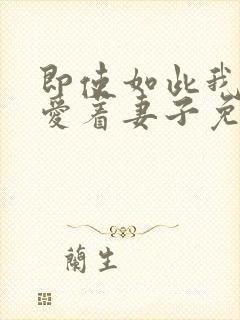 即使如此我
爱着妻子免
蘭生